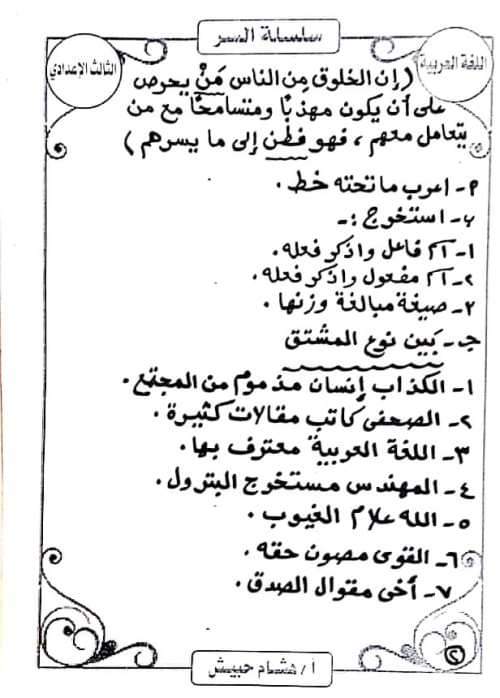 سلسلة السر
اللغة العربية
الثالث الإعدادي
(إن الخلوق من الناس مَنْ يحرص
على أن يكون مهذبًا ومتسامحًا مع من
يتعامل معهم ، فهو فطن إلى ما يسرهم )
٢- اعرب ما تحته خط .
ب- استخرج :-
١- اسم فاعل واذكر فعله.
٢- اسم مفعول واذكر فعله.
٣- صيغة مبالغة وزنها .
جـ- بَين نوع المشتق
١- الكذاب إنسان مذموم من المجتمع .
٢- الصحفى كاتب مقالات كثيرة .
٣- اللغة العربية معترف بها.
٤- المهندس مستخرج البترول .
٥- الله علام الغيوب .
٦- القوى مصون حقه .
٧- أخى مقوال الصدق .
أ/ هشام حبيش
٢